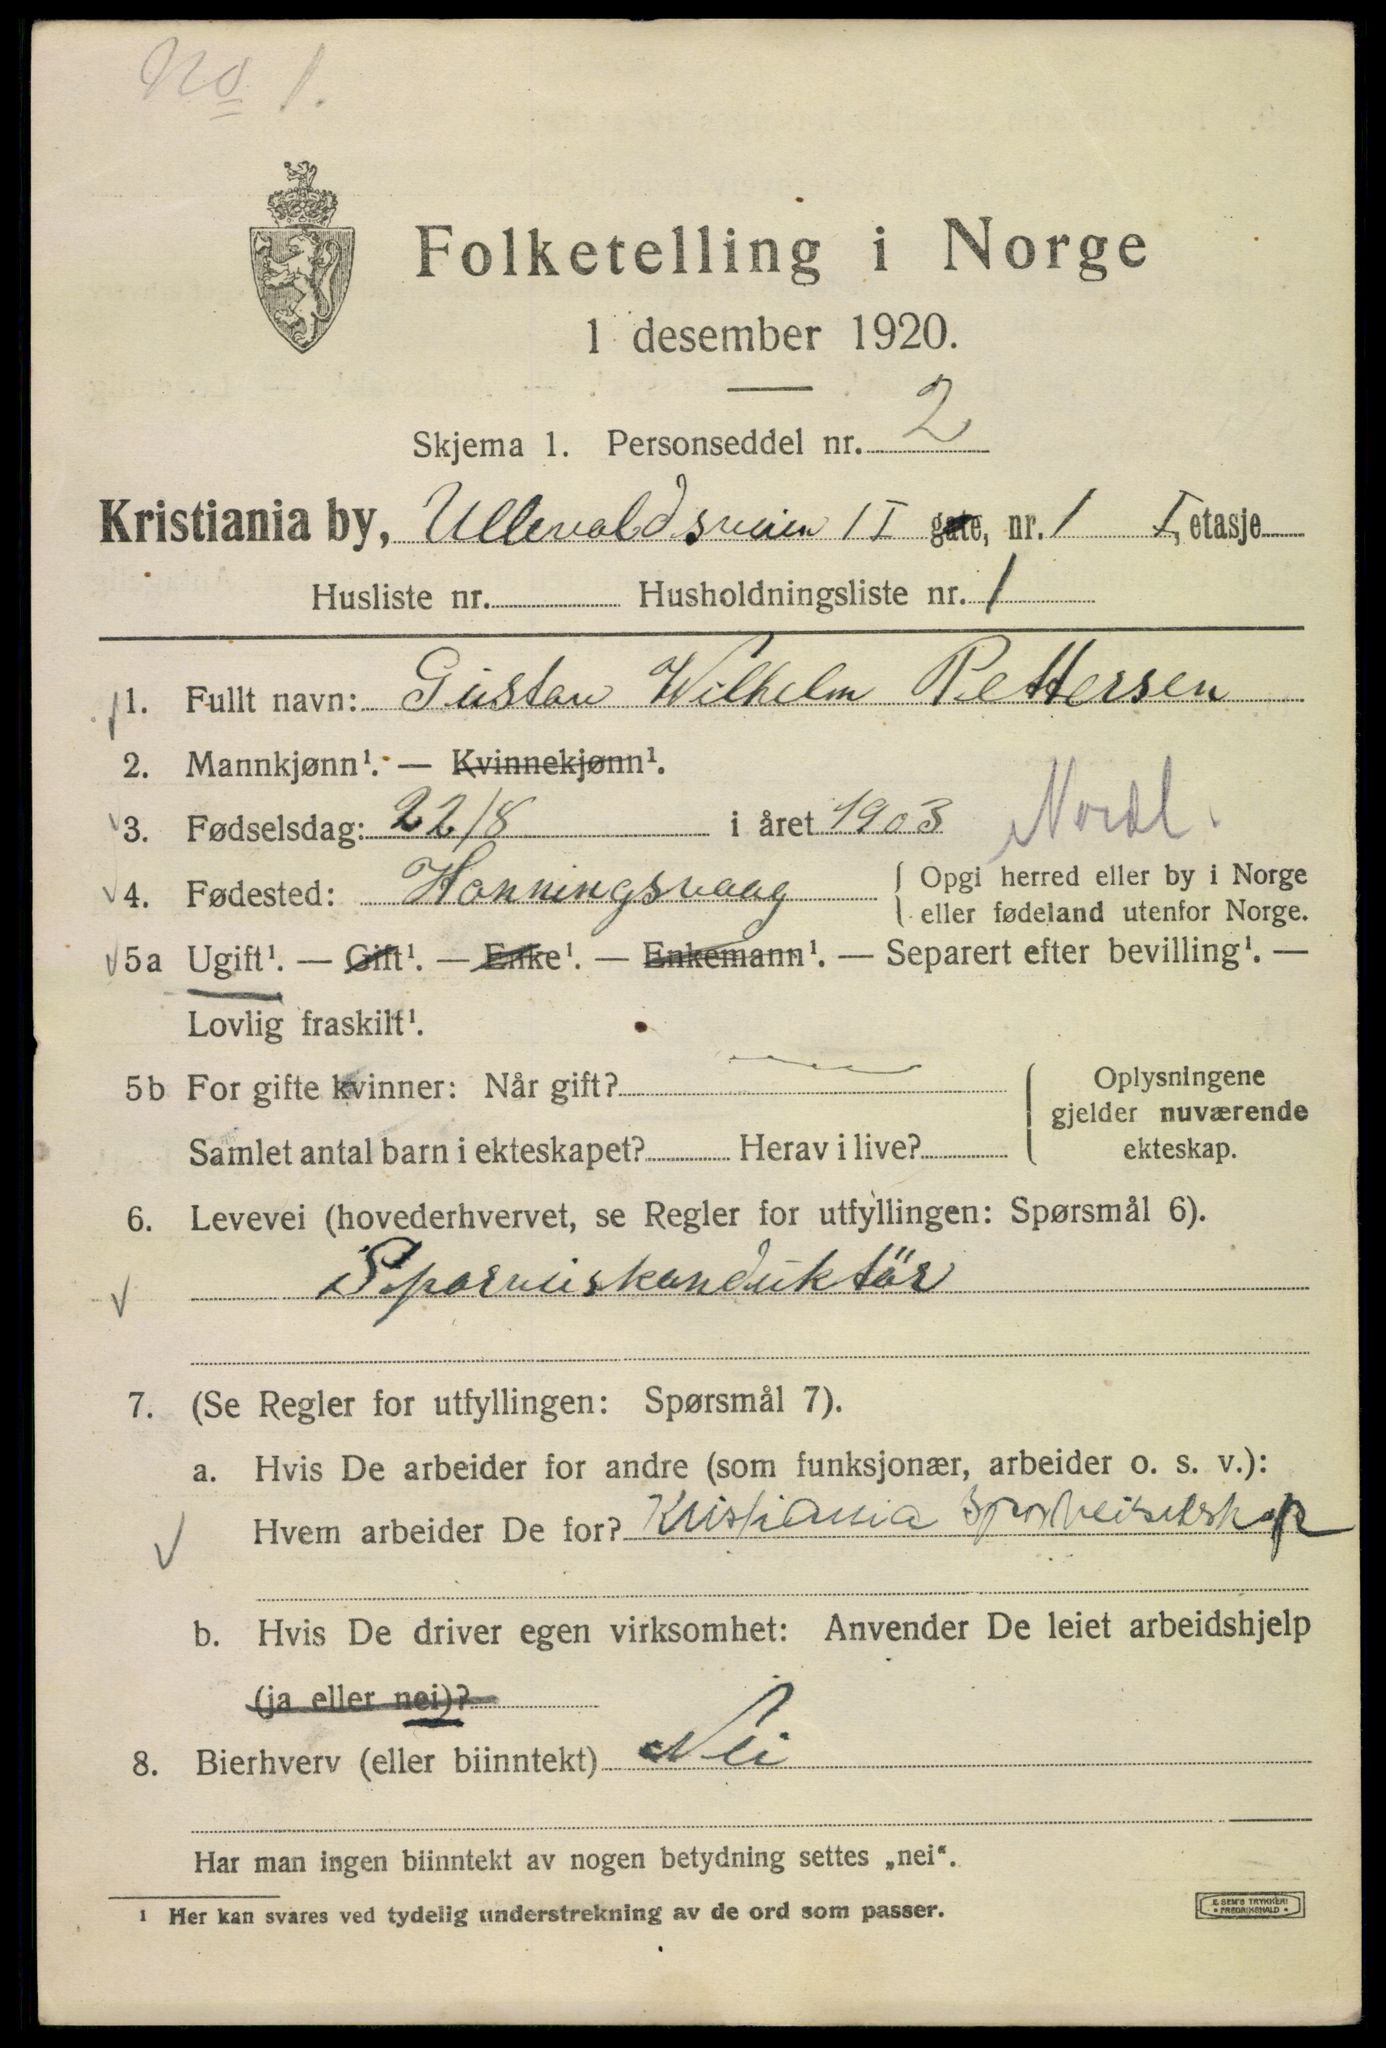 No 1.
Folketelling i Norge
1 desember 1920.
Skjema 1. Personseddel nr. 2
Kristiania by, Ullevoldsveien 11 I gate, nr. 1 I, etasje
Husliste nr. Husholdningsliste nr. 1
1. Fullt navn: Gustav Wilhelm Pettersen
2. Mannkjønn¹. — Kvinnekjønn¹.
3. Fødselsdag: 22/8 i året 1903 Nordl.
4. Fødested: Honningsvaag { Opgi herred eller by i Norge
eller fødeland utenfor Norge.
5a Ugift¹. — Gift¹. — Enke¹. — Enkemann¹. — Separert efter bevilling¹. —
Lovlig fraskilt¹.
5b For gifte kvinner: Når gift? { Oplysningene
gjelder nuværende
Samlet antal barn i ekteskapet? Herav i live? ekteskap.
6. Levevei (hovederhvervet, se Regler for utfyllingen: Spørsmål 6).
Sporveiskonduktör
7. (Se Regler for utfyllingen: Spørsmål 7).
a. Hvis De arbeider for andre (som funksjonær, arbeider o. s. v.):
Hvem arbeider De for? Kristiania Sporveiselskap
b. Hvis De driver egen virksomhet: Anvender De leiet arbeidshjelp
(ja eller nei)?
8. Bierhverv (eller biinntekt) Nei
Har man ingen biinntekt av nogen betydning settes „nei“.
¹ Her kan svares ved tydelig understrekning av de ord som passer.
E. SEM'S TRYKKERI
• FREDRIKSHALD •